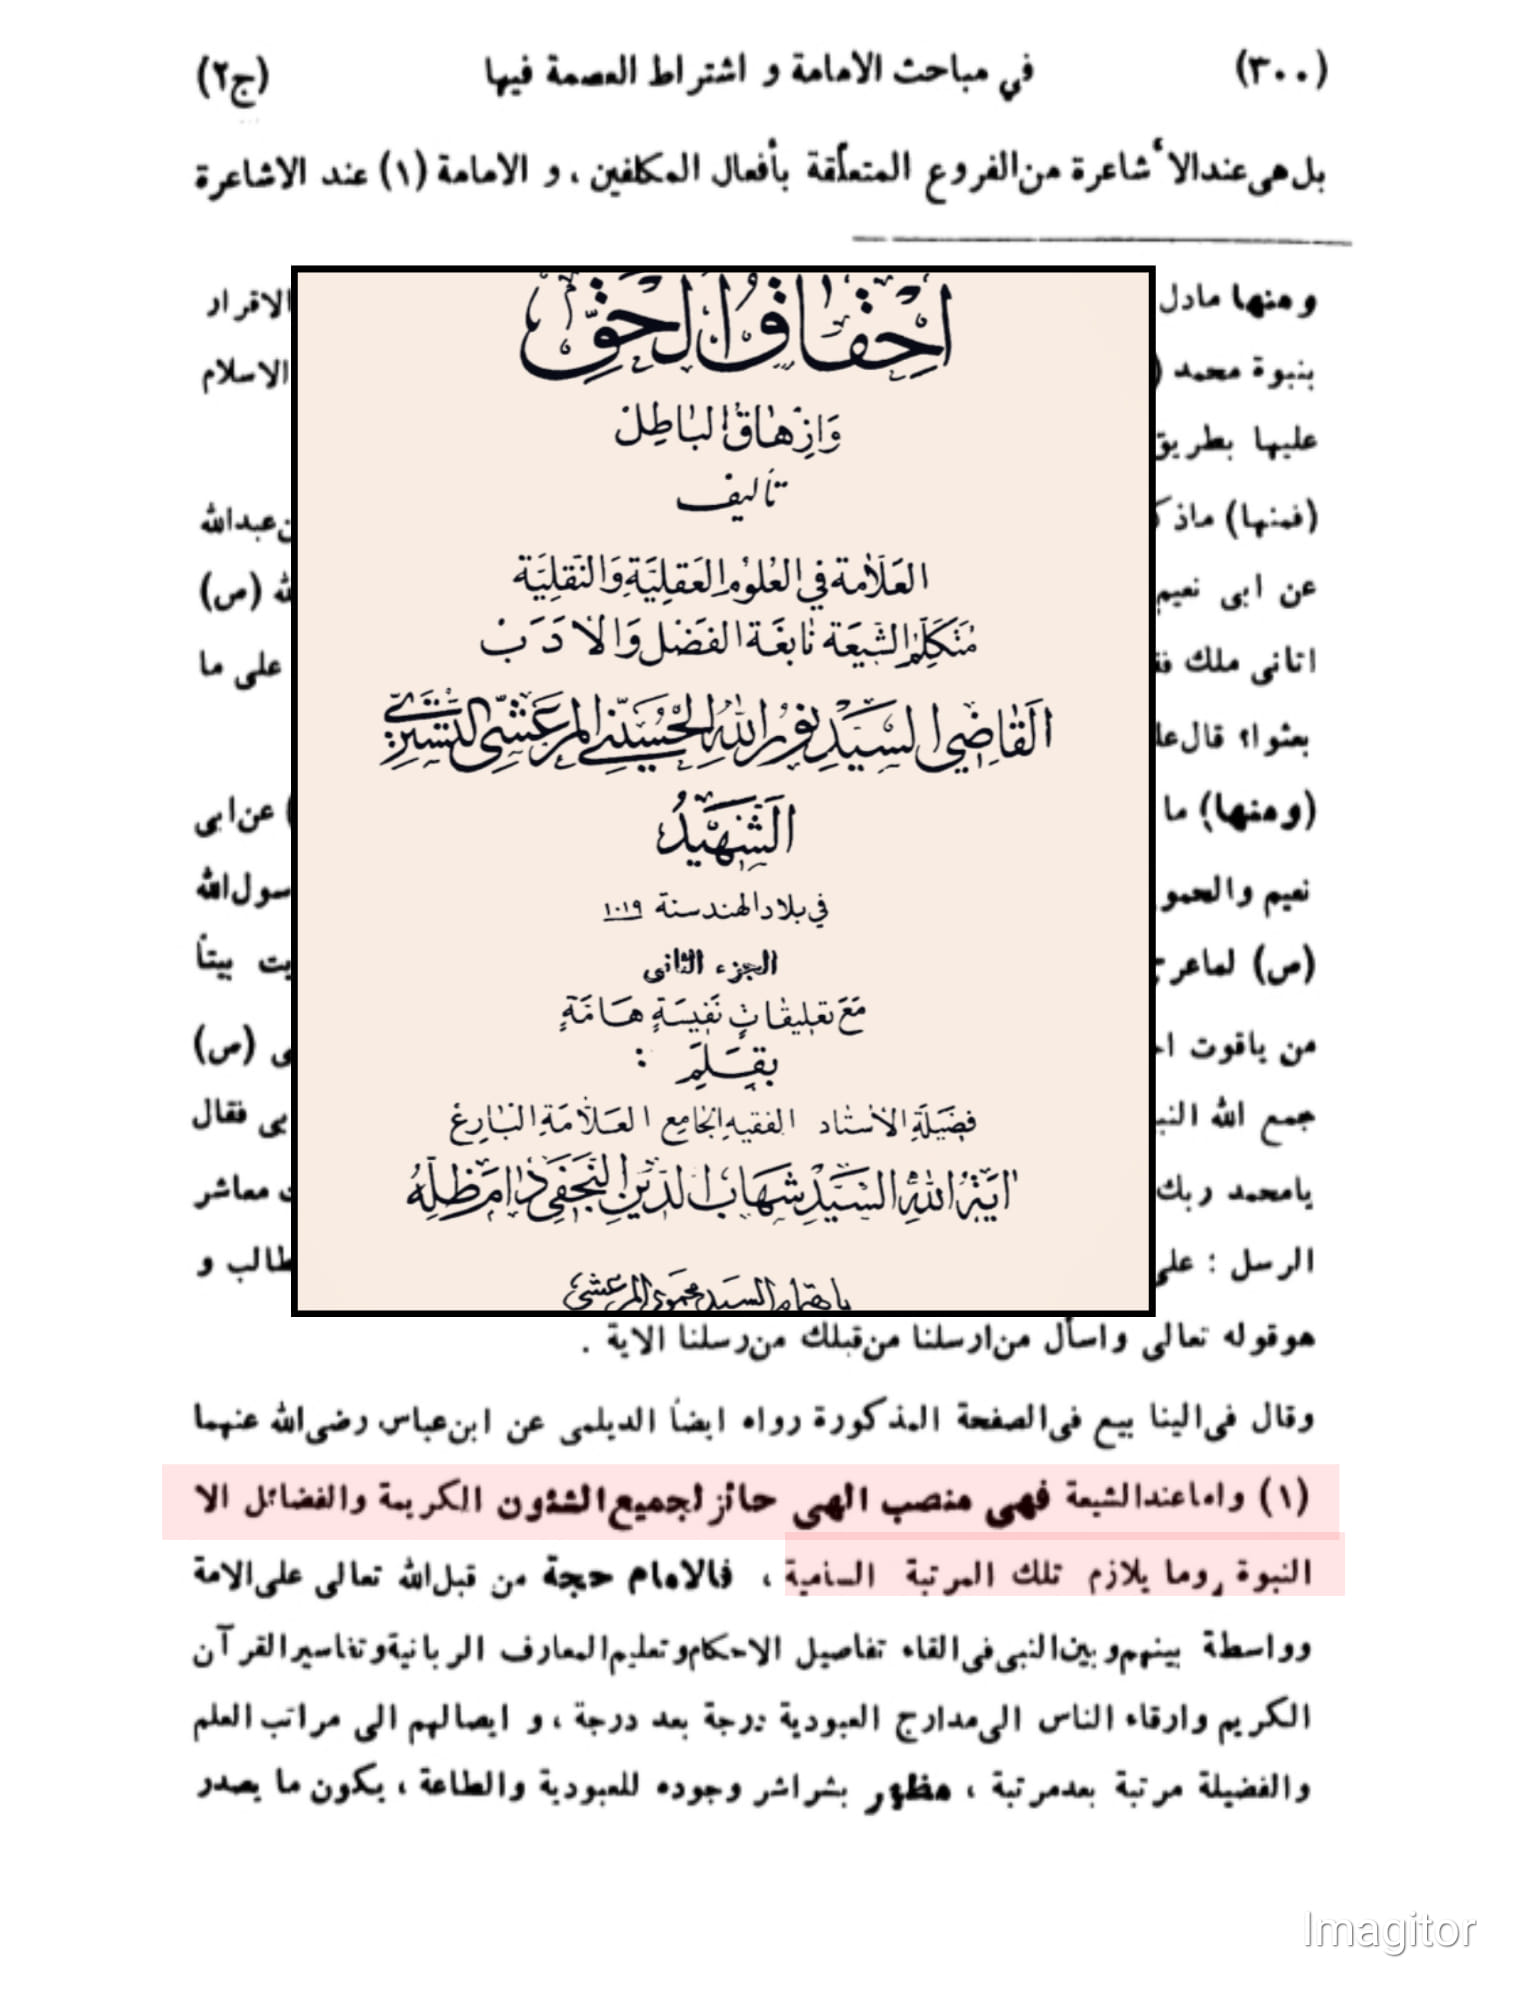 (٣٠٠) في مباحث الامامة و اشتراط العصمة فيها (ج٢)
بل هى عند الأشاعرة من الفروع المتعلّقة بأفعال المكلفين ، و الامامة (١) عند الاشاعرة
ومنها مادل
الاقرار
بنبوة محمد (
الاسلام
عليها بطريق
(فمنها) ماذك
ن عبدالله
عن ابى نعيم
لله (ص)
اتانى ملك فق
على ما
بعثوا؟ قال على
(ومنها) ما
) عن ابى
نعيم والحمو
سول الله
(ص) لما عرج
يت بيتاً
من ياقوت اح
ى (ص)
جمع الله النب
ى فقال
يا محمد ربك
ت معاشر
الرسل : على
طالب و
احقاق الحق
وازهاق الباطل
تأليف
العلامة في العلوم العقلية والنقلية
متكلم الشيعة نابغة الفضل والادب
القاضي السيد نور الله الحسيني المرعشي التستري
الشهيد
في بلاد الهند سنة ١٠١٩
الجزء الثانى
مع تعليقات نفيسة هامة
بقلم :
فضيلة الأستاد الفقيه الجامع العلامة البارع
اية الله السيد شهاب الدين النجفي دام ظله
باهتمام السيد محمود المرعشي
هو قوله تعالى واسأل من ارسلنا من قبلك من رسلنا الاية .
وقال فى الينابيع فى الصفحة المذكورة رواه ايضاً الديلمى عن ابن عباس رضى الله عنهما
(١) واما عند الشيعة فهى منصب الهى حائز لجميع الشئون الكريمة والفضائل الا
النبوة وما يلازم تلك المرتبة السامية ، فالامام حجة من قبل الله تعالى على الامة
وواسطة بينهم وبين النبى فى القاء تفاصيل الاحكام وتعليم المعارف الربانية وتفاسير القرآن
الكريم وارقاء الناس الى مدارج العبودية درجة بعد درجة ، و ايصالهم الى مراتب العلم
والفضيلة مرتبة بعد مرتبة ، مظهر بشراشر وجوده للعبودية والطاعة ، يكون ما يصدر
Imagitor